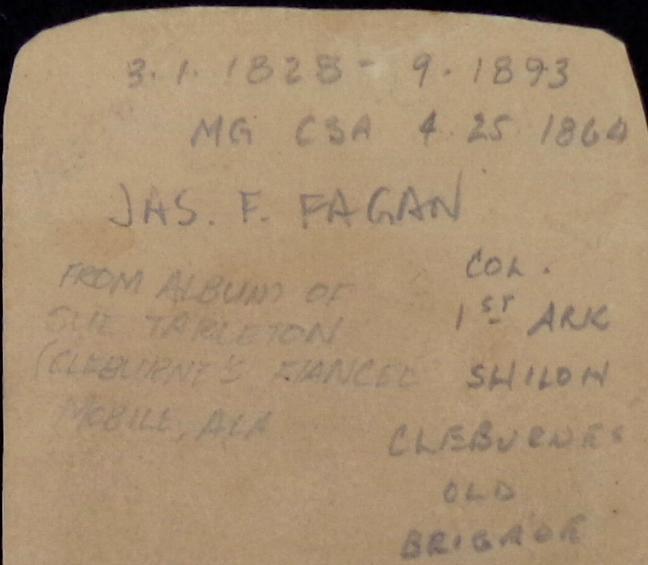 3. 1. 1828 - 9. 1893
MG CSA 4 25 1864
JAS. F. FAGAN
FROM ALBUM OF
SUE TARLETON
(CLEBURNE'S FIANCEE
MOBILE, ALA
COL.
1ST ARK
SHILOH
CLEBURNES
OLD
BRIGADE